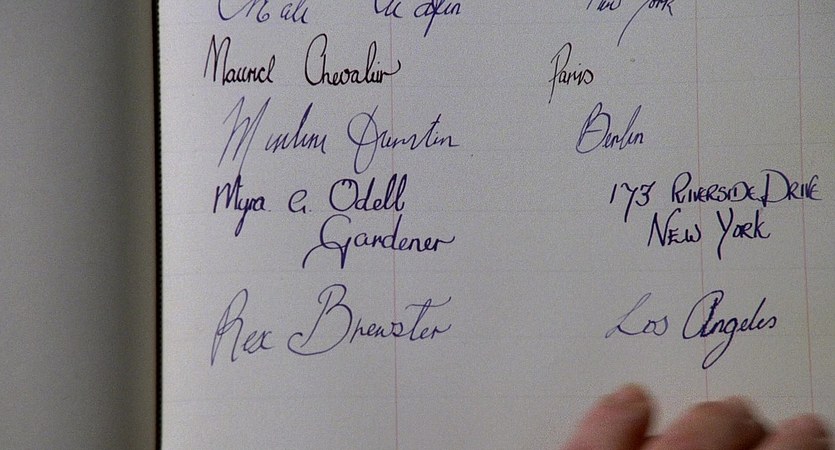 New York
Maurice Chevalier Paris
Berlin
Myra G. Odell 173 Riverside Drive
Gardener New York
Rex Brewster Los Angeles